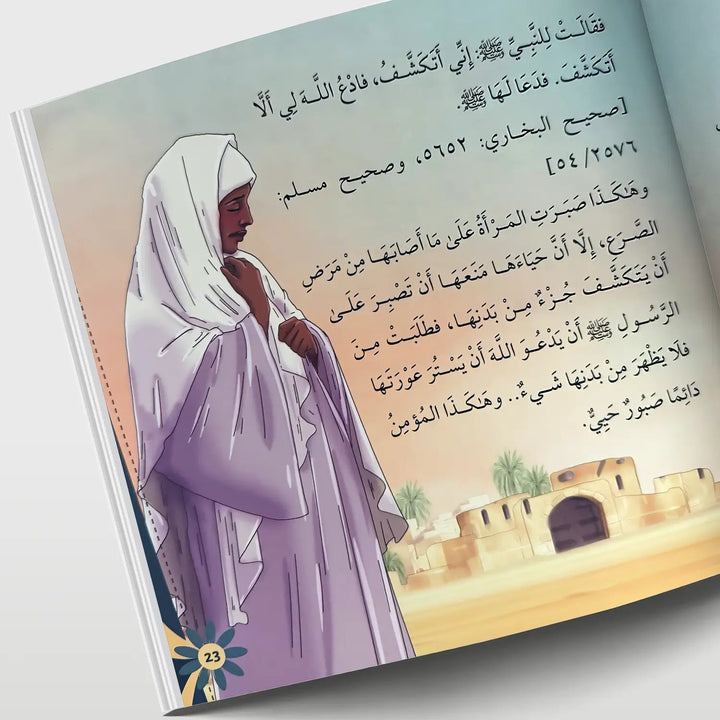 فَقَالَتْ لِلنَّبِيِّ ﷺ: إِنِّي أَتَكَشَّفُ، فَادْعُ اللَّهَ لِي أَلَّا
أَتَكَشَّفَ. فَدَعَا لَهَا ﷺ.
[صحيح البخاري: ٥٦٥٢، وصحيح مسلم:
٥٤/٢٥٧٦]
وهَٰكَذَا صَبَرَتِ المَرْأَةُ عَلَىٰ مَا أَصَابَهَا مِنْ مَرَضِ
الصَّرَعِ، إِلَّا أَنَّ حَيَاءَهَا مَنَعَهَا أَنْ تَصْبِرَ عَلَىٰ
أَنْ يَتَكَشَّفَ جُزْءٌ مِنْ بَدَنِهَا، فَطَلَبَتْ مِنَ
الرَّسُولِ ﷺ أَنْ يَدْعُوَ اللَّهَ أَنْ يَسْتُرَ عَوْرَتَهَا
فَلَا يَظْهَرَ مِنْ بَدَنِهَا شَيءٌ.. وهَٰكَذَا المُؤمِنُ
دَائِمًا صَبُورٌ حَيِيٌّ.
23